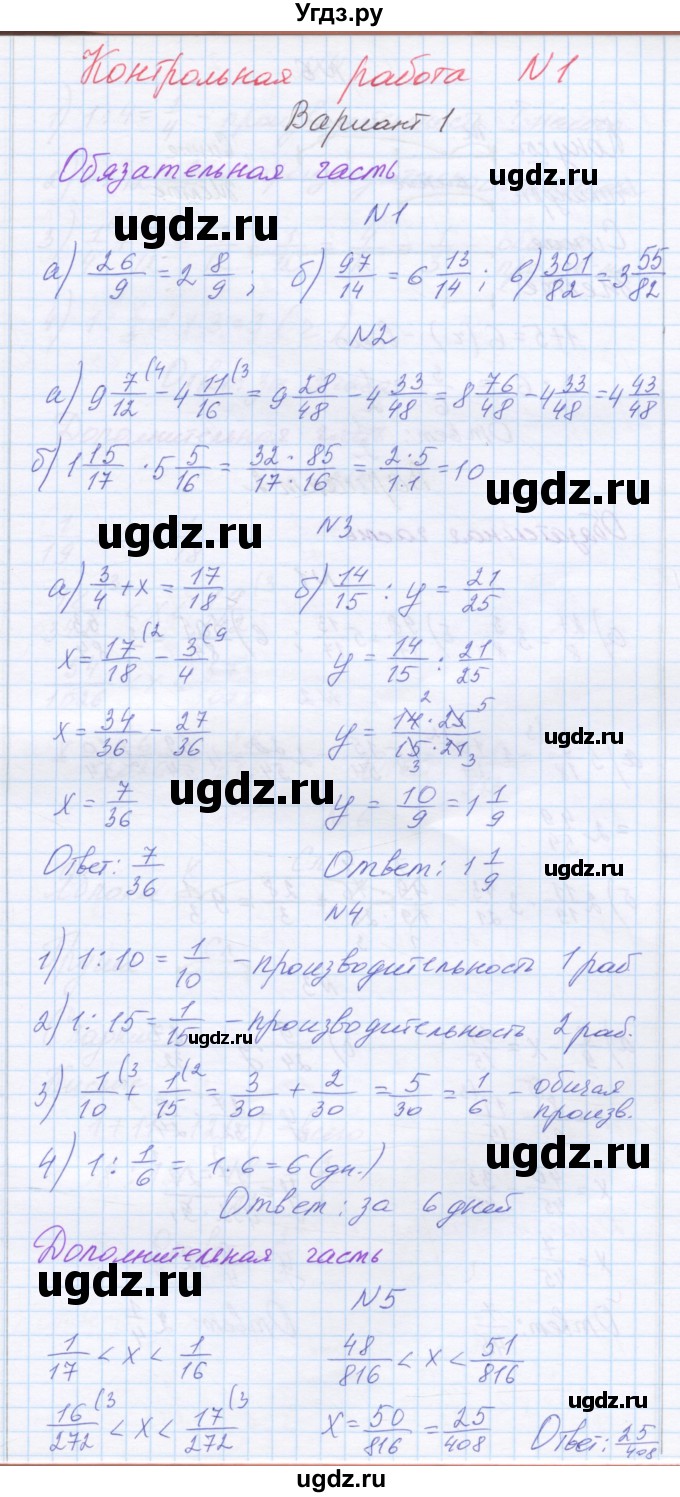 Угдз.ру
Контрольная работа N1
Вариант 1
Обязательная часть
ugdz.ru
ugdz.ru
N1
а) 26/9 = 2 8/9; б) 97/14 = 6 13/14; в) 301/82 = 3 55/82
ugdz.ru
N2
а) 9 7/12 (4 - 4 11/16 (3 = 9 28/48 - 4 33/48 = 8 76/48 - 4 33/48 = 4 43/48
б) 1 15/17 · 5 5/16 = 32·85/17·16 = 2·5/1·1 = 10
ugdz.ru
ugdz.ru
N3
а) 3/4 + x = 17/18 б) 14/15 : y = 21/25
x = 17/18 (2 - 3/4 (9 y = 14/15 : 21/25
x = 34/36 - 27/36 y = 14 2 · 25 5/15 3 · 21 3
ugdz.ru
ugdz.ru
x = 7/36 y = 10/9 = 1 1/9
Ответ: 7/36 Ответ: 1 1/9
ugdz.ru
N4
1) 1:10 = 1/10 - производительность 1 раб
2) 1:15 = 1/15 - производительность 2 раб.
ugdz.ru
3) 1/10 (3 + 1/15 (2 = 3/30 + 2/30 = 5/30 = 1/6 - общая произв.
4) 1: 1/6 = 1·6 = 6 (дн.)
ugdz.ru
Ответ: за 6 дней
Дополнительная часть
ugdz.ru
N5
1/17 < x < 1/16 48/816 < x < 51/816
ugdz.ru
16/272 (3 < x < 17/272 (3 x = 50/816 = 25/408 Ответ: 25/408
ugdz.ru
ugdz.ru